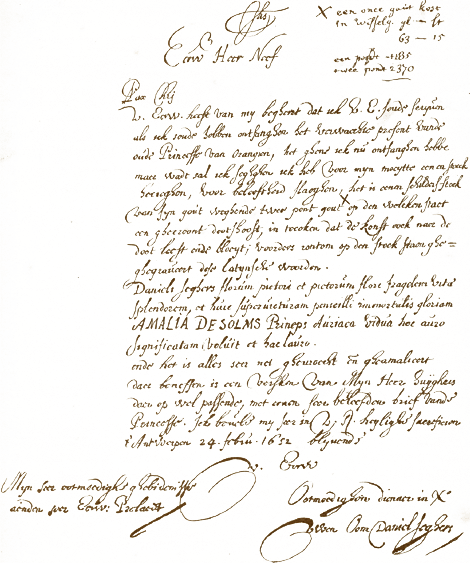 Jhs
X een once gout kost
in wisselg. gl — st
63 — 15
een pondt - 1185
twee pondt 2370
Eerw Heer Neef
Pax Chri
V. Eerw. heeft van my begheert dat ick V. E. soude
als ick soude hebben ontfanghen het verwachte present vande
oude Princesse van Orangien, het ghene ick nu ontfanghen hebbe
maer wadt sal ick segghen ick heb voor myn moeyte eenen stock
voor beleeftheid slaeghen, het is eenen schilders stock
van fyn gout weghende twee pont gout X op den welcken staet
een gheexont doots hooft, in teecken dat de konst oock naer de
doot leeft ende bloeyt; voorders rontom op den stock staen ghe=
ghegraveert dese latynsche woorden.
Danieli Seghers florum pictori et pictorum flori fragilem vitæ
splendorem, et huic supervicturam penicilli immortalis gloriam
AMALIA DE SOLMS Princeps Auriaca vidua hoc auro
significatam voluit et hac lauro.
ende het is alles seer net ghewrocht en gheamaliert
daer beneffen is een versken van Mijn Heer Huyghens
daer op wel passende, met eenen seer beleefden brief vande
Princesse. Ick bevele my seer in V. E. heylighe sacrificien
Antwerpen 24 1652 blyvende
V. Eerw
Mijn seer ootmoedighe ghebiedenisse
aenden seer Eerw: Prelaet
Ootmoedighen dienaer in X°
Uwen Oom Daniel Seghers